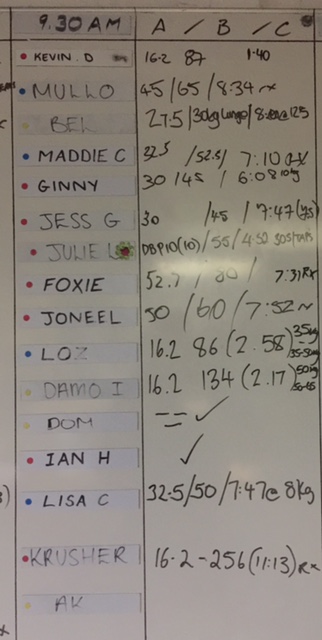 9.30 AM A / B / C
KEVIN. D 16.2 87 1.40
MULLO 45/65/8:34 rx
BEK 27.5/30kg Lunge/
MADDIE C 32.5 /52.5/ 7:10
GINNY 30 /45 / 6:08 10kg
JESS G 30 /45 / 7:47
JULIE L DBP10(10)/55/4:50
FOXIE 52.7 / 80 / 7:31 RX
JONEEL 50 / 60 / 7:52
LOZ 16.2 86 (2.58) 35kg
35-50kg
DAMO I 16.2 134 (2.17) 50kg
DOM
IAN H ✓
LISA C 32.5/50/7:47@8kg
KRUSHER 16.2-256(11:13)Rx
AK